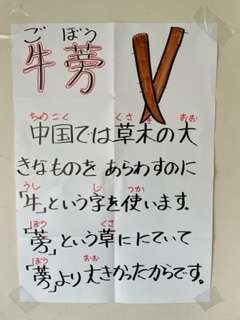 ごぼう
牛蒡
ちゅうごく くさき おお
中国では草木の大
きなものを あらわすのに
うし じ つか
「牛」という字を使います。
ぼう くさ
「蒡」という草ににていて
ぼう おお
「蒡」より大きかったからです。